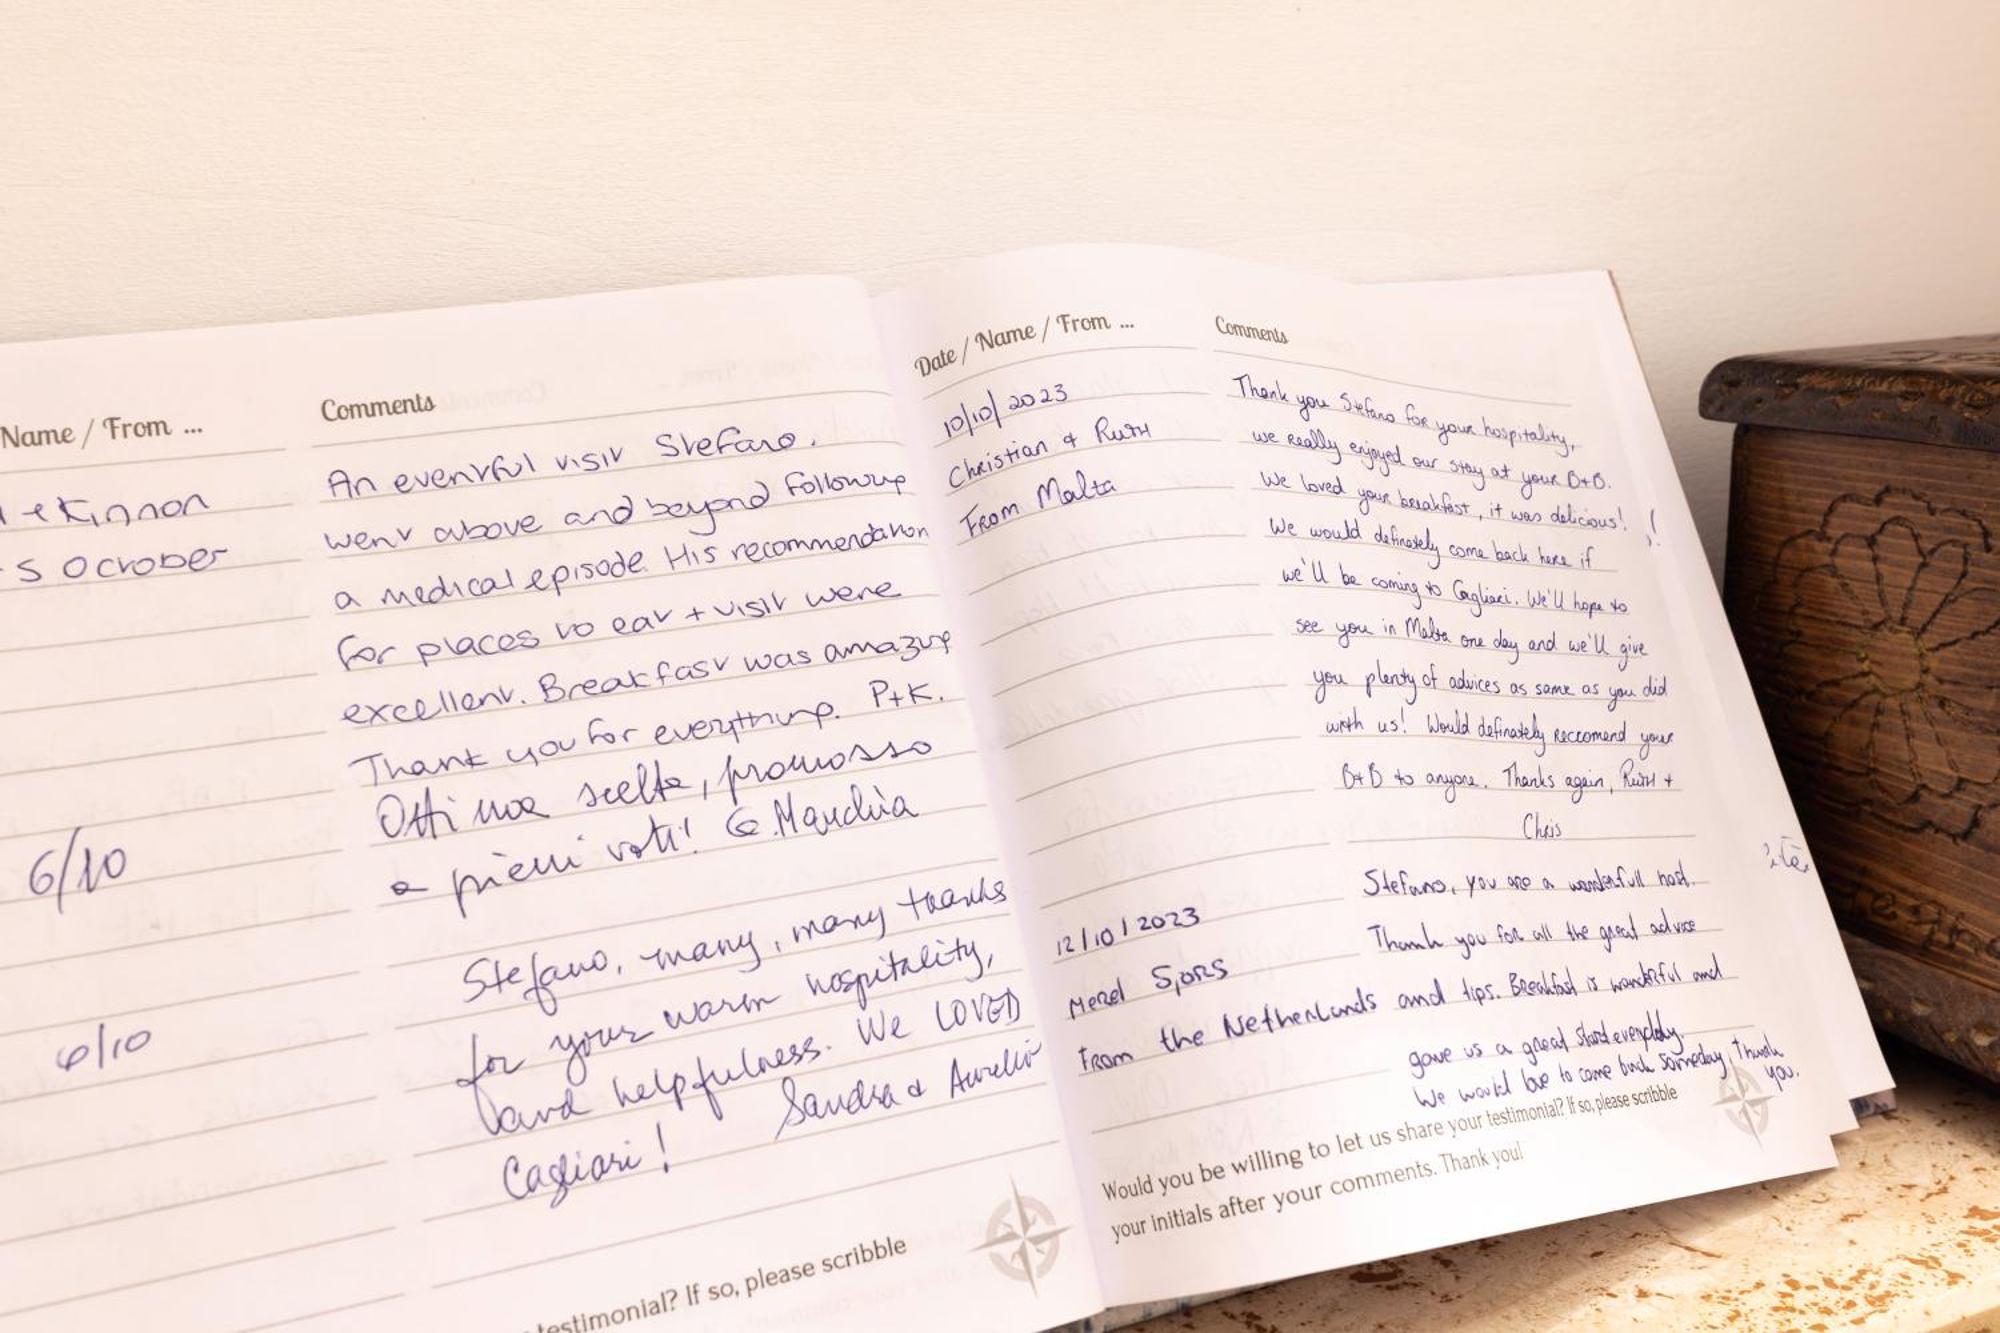 Name / From ...
Comments
Kinnon
5 October
An eventful visit Stefano.
went above and beyond following
a medical episode. His recommendation
for places to eat + visit were
excellent. Breakfast was amazing
Thank you for everything. P+K.
6/10
Ottima scelta, promosso
a pieni voti! G.
6/10
Stefano, many, many thanks
for your warm hospitality,
and helpfulness. We LOVED
Cagliari! Sandra & Aurelio
testimonial? If so, please scribble
Date / Name / From ...
Comments
10/10/2023
Christian & Ruth
From Malta
Thank you Stefano for your hospitality,
we really enjoyed our stay at your B+B.
We loved your breakfast, it was delicious!!
We would definately come back here if
we'll be coming to Cagliari. We'll hope to
see you in Malta one day and we'll give
you plenty of advices as same as you did
with us! Would definately reccomend your
B+B to anyone. Thanks again, Ruth +
Chris
12/10/2023
Merel
From the Netherlands
Stefano, you are a wonderfull host.
Thank you for all the great advice
and tips. Breakfast is wonderful and
gave us a great start everyday.
We would love to come back someday. Thank
you.
Would you be willing to let us share your testimonial? If so, please scribble
your initials after your comments. Thank you!